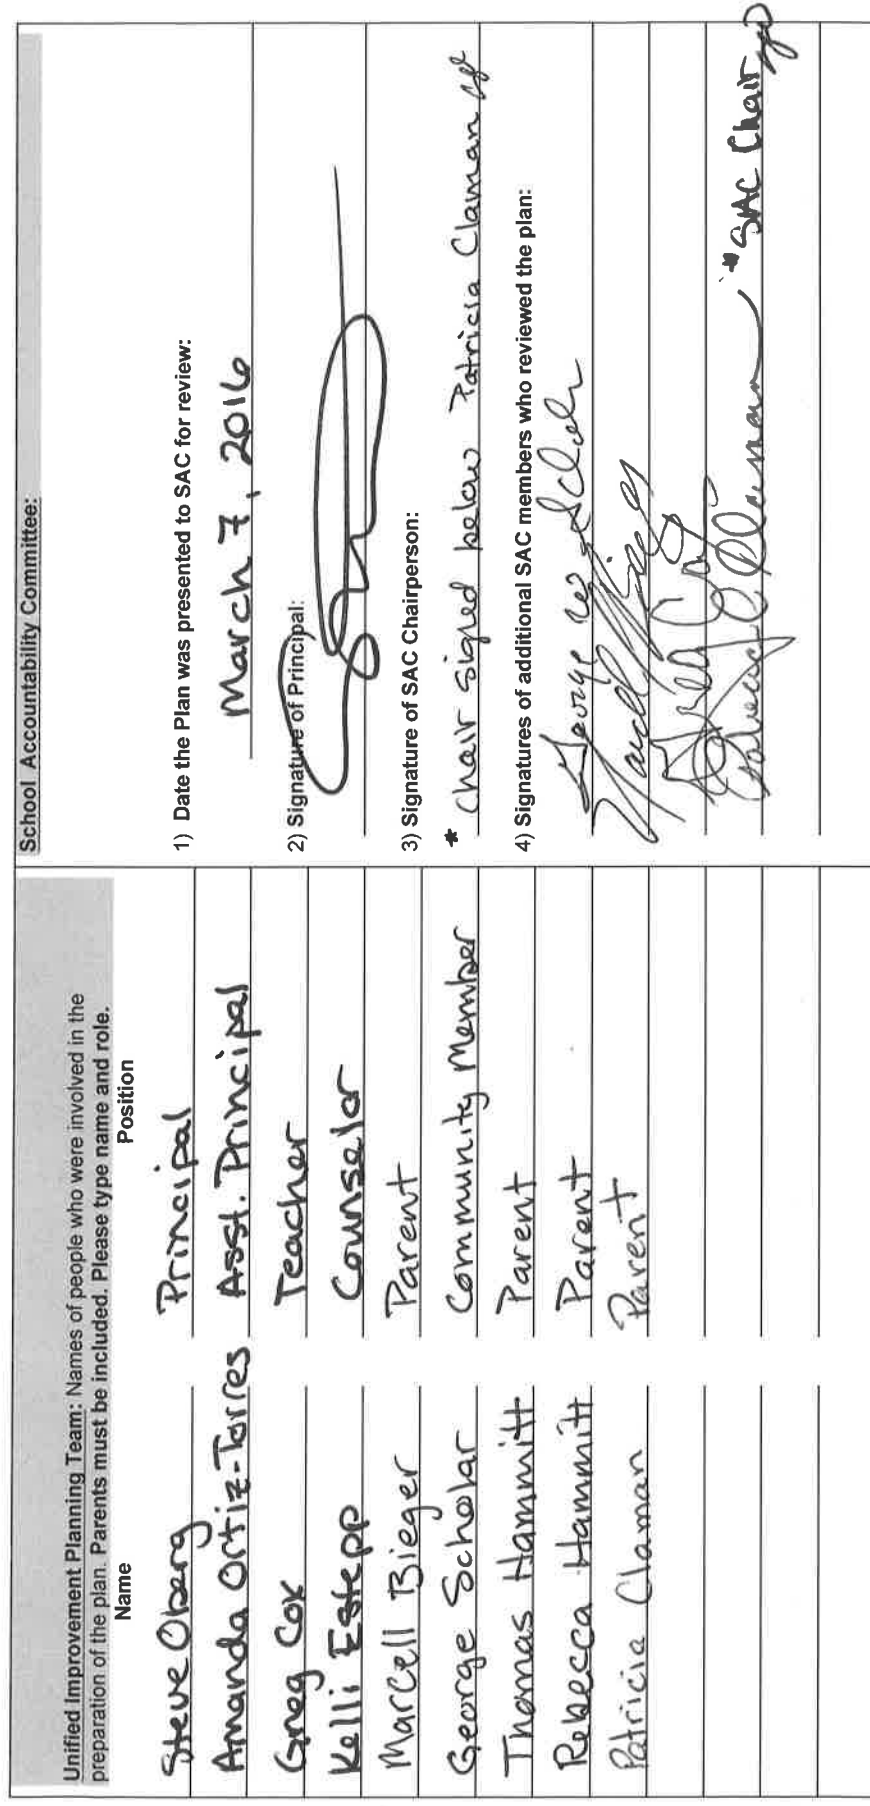 Unified Improvement Planning Team: Names of people who were involved in the
preparation of the plan. Parents must be included. Please type name and role.
Name Position
Steve Oberg Principal
Amanda Ortiz-Torres Asst. Principal
Greg Cox Teacher
Kelli Estepp Counselor
Marcell Bieger Parent
George Scholar Community Member
Thomas Hammitt Parent
Rebecca Hammitt Parent
Patricia Claman Parent
School Accountability Committee:
1) Date the Plan was presented to SAC for review:
March 7, 2016
2) Signature of Principal:
3) Signature of SAC Chairperson:
* Chair signed below Patricia Claman
4) Signatures of additional SAC members who reviewed the plan:
George W Scholar
Claman *SAC Chair